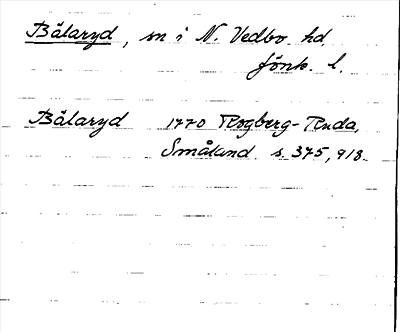 Bälaryd, sn i N. Vedbo hd.
Jönk. l.
Bälaryd 1770 Rogberg-Ruda,
Småland s 375, 918.